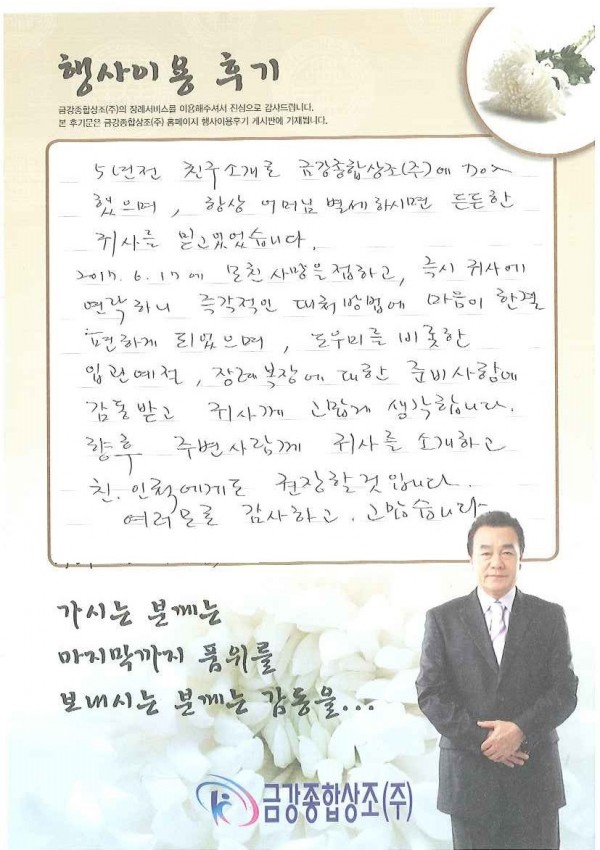 행사이용 후기
금강종합상조(주)의 장례서비스를 이용해주셔서 진심으로 감사드립니다.
본 후기문은 금강종합상조(주) 홈페이지 행사이용후기 게시판에 기재됩니다.
5년전 친구소개로 금강종합상조(주)에 가입
했으며, 항상 어머님 별세하시면 든든한
귀사를 믿고있었습니다.
2017. 6. 17에 모친사망을접하고, 즉시 귀사에
연락하니 즉각적인 대처방법에 마음이 한결
편하게 되었으며, 도우미를 비롯한
입관예절, 장례복장에 대한 준비사항에
감동받고 귀사께 고맙게 생각합니다.
향후 주변사람께 귀사를 소개하고
친.인척에게도 권장할것입니다.
여러모로 감사하고. 고맙습니다
가시는 분께는
마지막까지 품위를
보내시는 분께는 감동을...
금강종합상조(주)